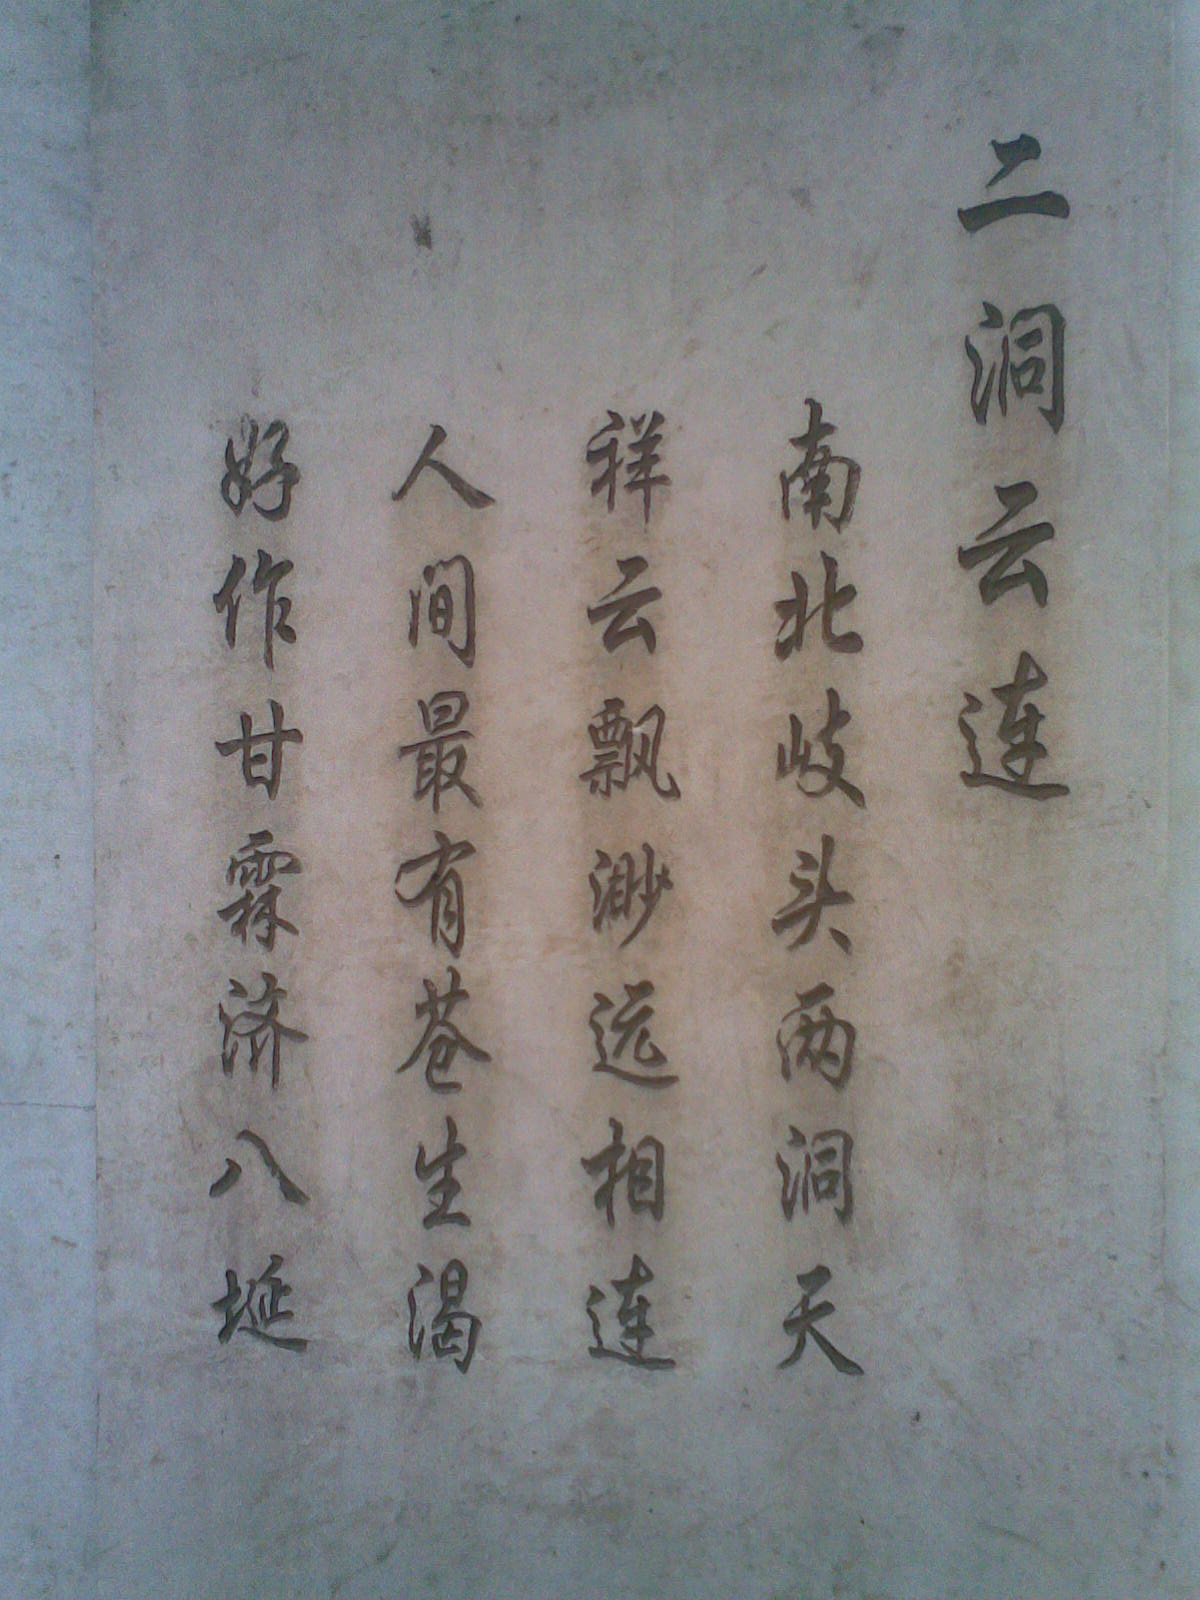 二洞云连
南北歧头两洞天
祥云飘渺远相连
人间最有苍生渴
好作甘霖济八埏